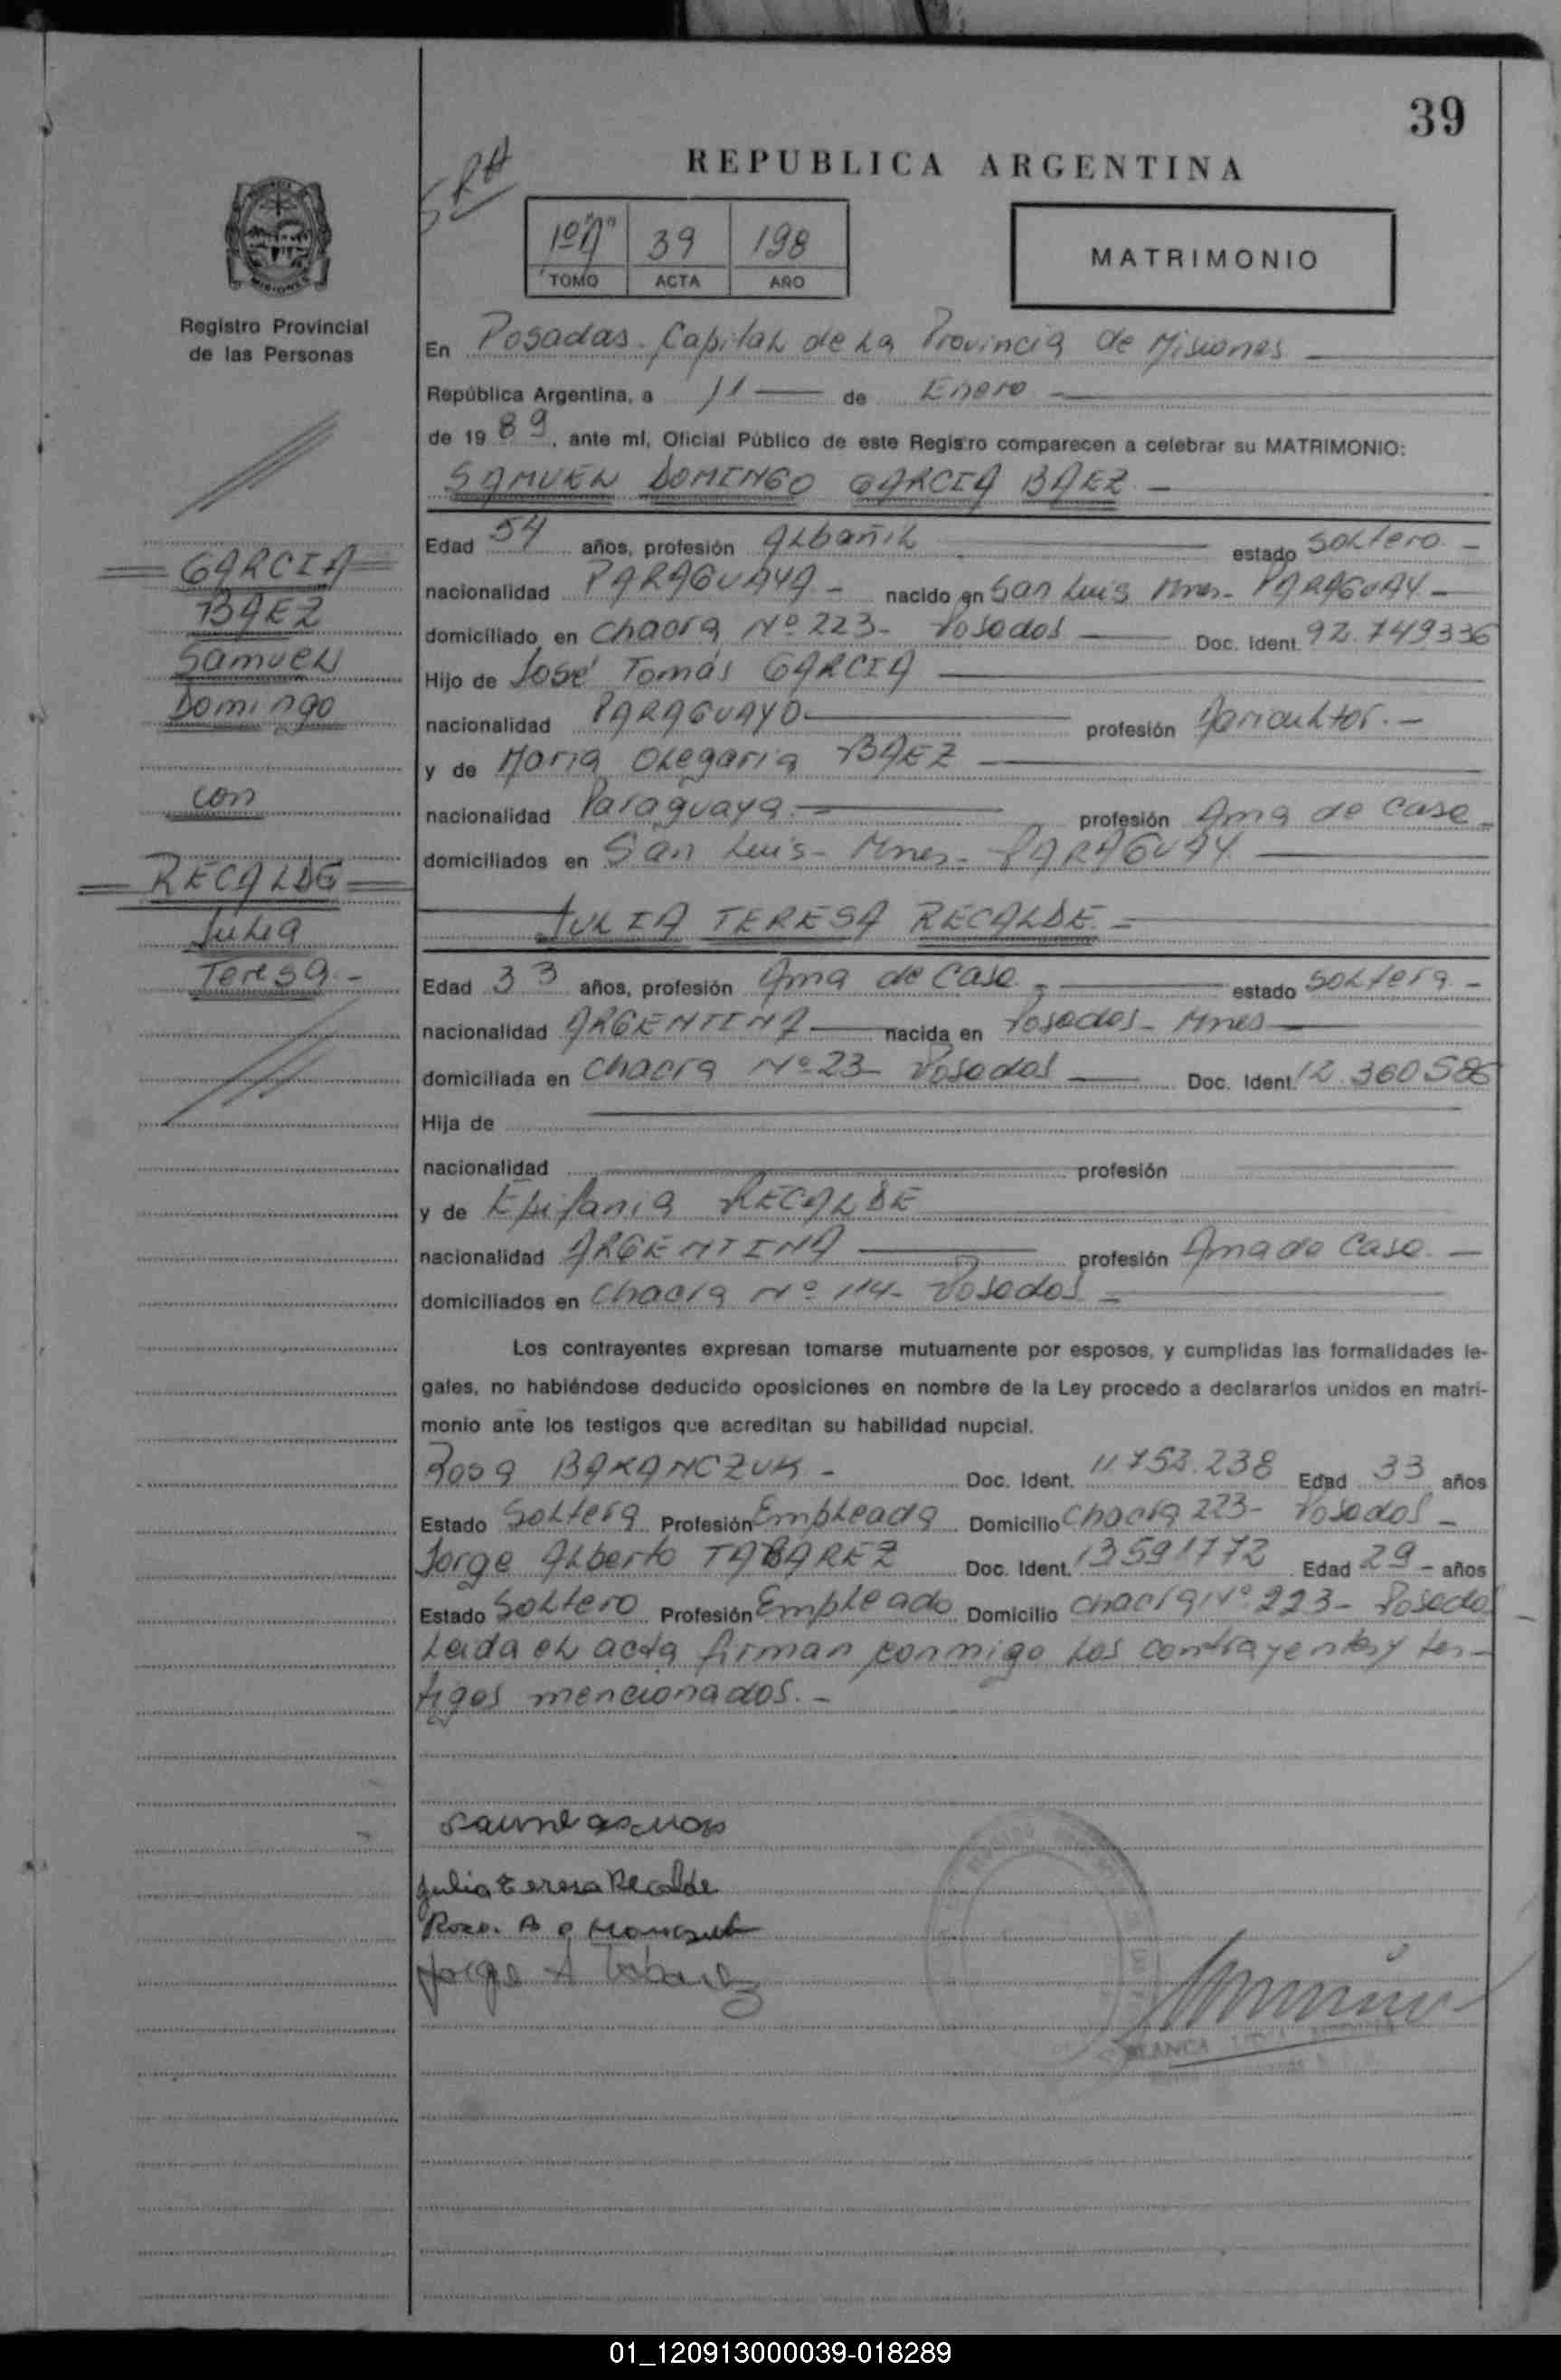 39
REPUBLICA ARGENTINA
SRH
1º "A" 39 198
TOMO ACTA AÑO
MATRIMONIO
MISIONES
Registro Provincial
de las Personas
En Posadas - Capital de La Provincia de Misiones
República Argentina, a 11 de Enero
de 1989, ante mi, Oficial Público de este Registro comparecen a celebrar su MATRIMONIO:
SAMUEL DOMINGO GARCIA BAEZ -
GARCIA
BAEZ
Samuel
Domingo
con
RECALDE
Julia
Teresa.-
Edad 54 años, profesión Albañil estado Soltero -
nacionalidad PARAGUAYA - nacido en San Luis Mnes - PARAGUAY -
domiciliado en Chacra Nº 223- Posadas Doc. Ident. 92.749336
Hijo de José Tomás GARCIA
nacionalidad PARAGUAYO profesión Agricultor.-
y de Maria Olegaria BAEZ
nacionalidad Paraguaya profesión Ama de Casa -
domiciliados en San Luis - Mnes - PARAGUAY
JULIA TERESA RECALDE -
Edad 33 años, profesión Ama de Casa - estado Soltera -
nacionalidad ARGENTINA nacida en Posadas - Mnes
domiciliada en Chacra Nº 23- Posadas Doc. Ident. 12.360586
Hija de
nacionalidad profesión
y de Epifania RECALDE
nacionalidad ARGENTINA profesión Ama de Casa. -
domiciliados en Chacra Nº 114- Posadas -
Los contrayentes expresan tomarse mutuamente por esposos, y cumplidas las formalidades le-
gales, no habiéndose deducido oposiciones en nombre de la Ley procedo a declararlos unidos en matri-
monio ante los testigos que acreditan su habilidad nupcial.
Rosa BAKANCZUK - Doc. Ident. 11.753.238 Edad 33 años
Estado Soltera Profesión Empleada Domicilio Chacra 223- Posadas -
Jorge Alberto TABAREZ Doc. Ident. 13591772 Edad 29 - años
Estado Soltero Profesión Empleado Domicilio Chacra Nº 223- Posadas
Leida el acta firman conmigo los contrayentes y tes-
tigos mencionados. -
Julia Teresa Recalde
Jorge A Tabarez
BLANCA
01_120913000039-018289